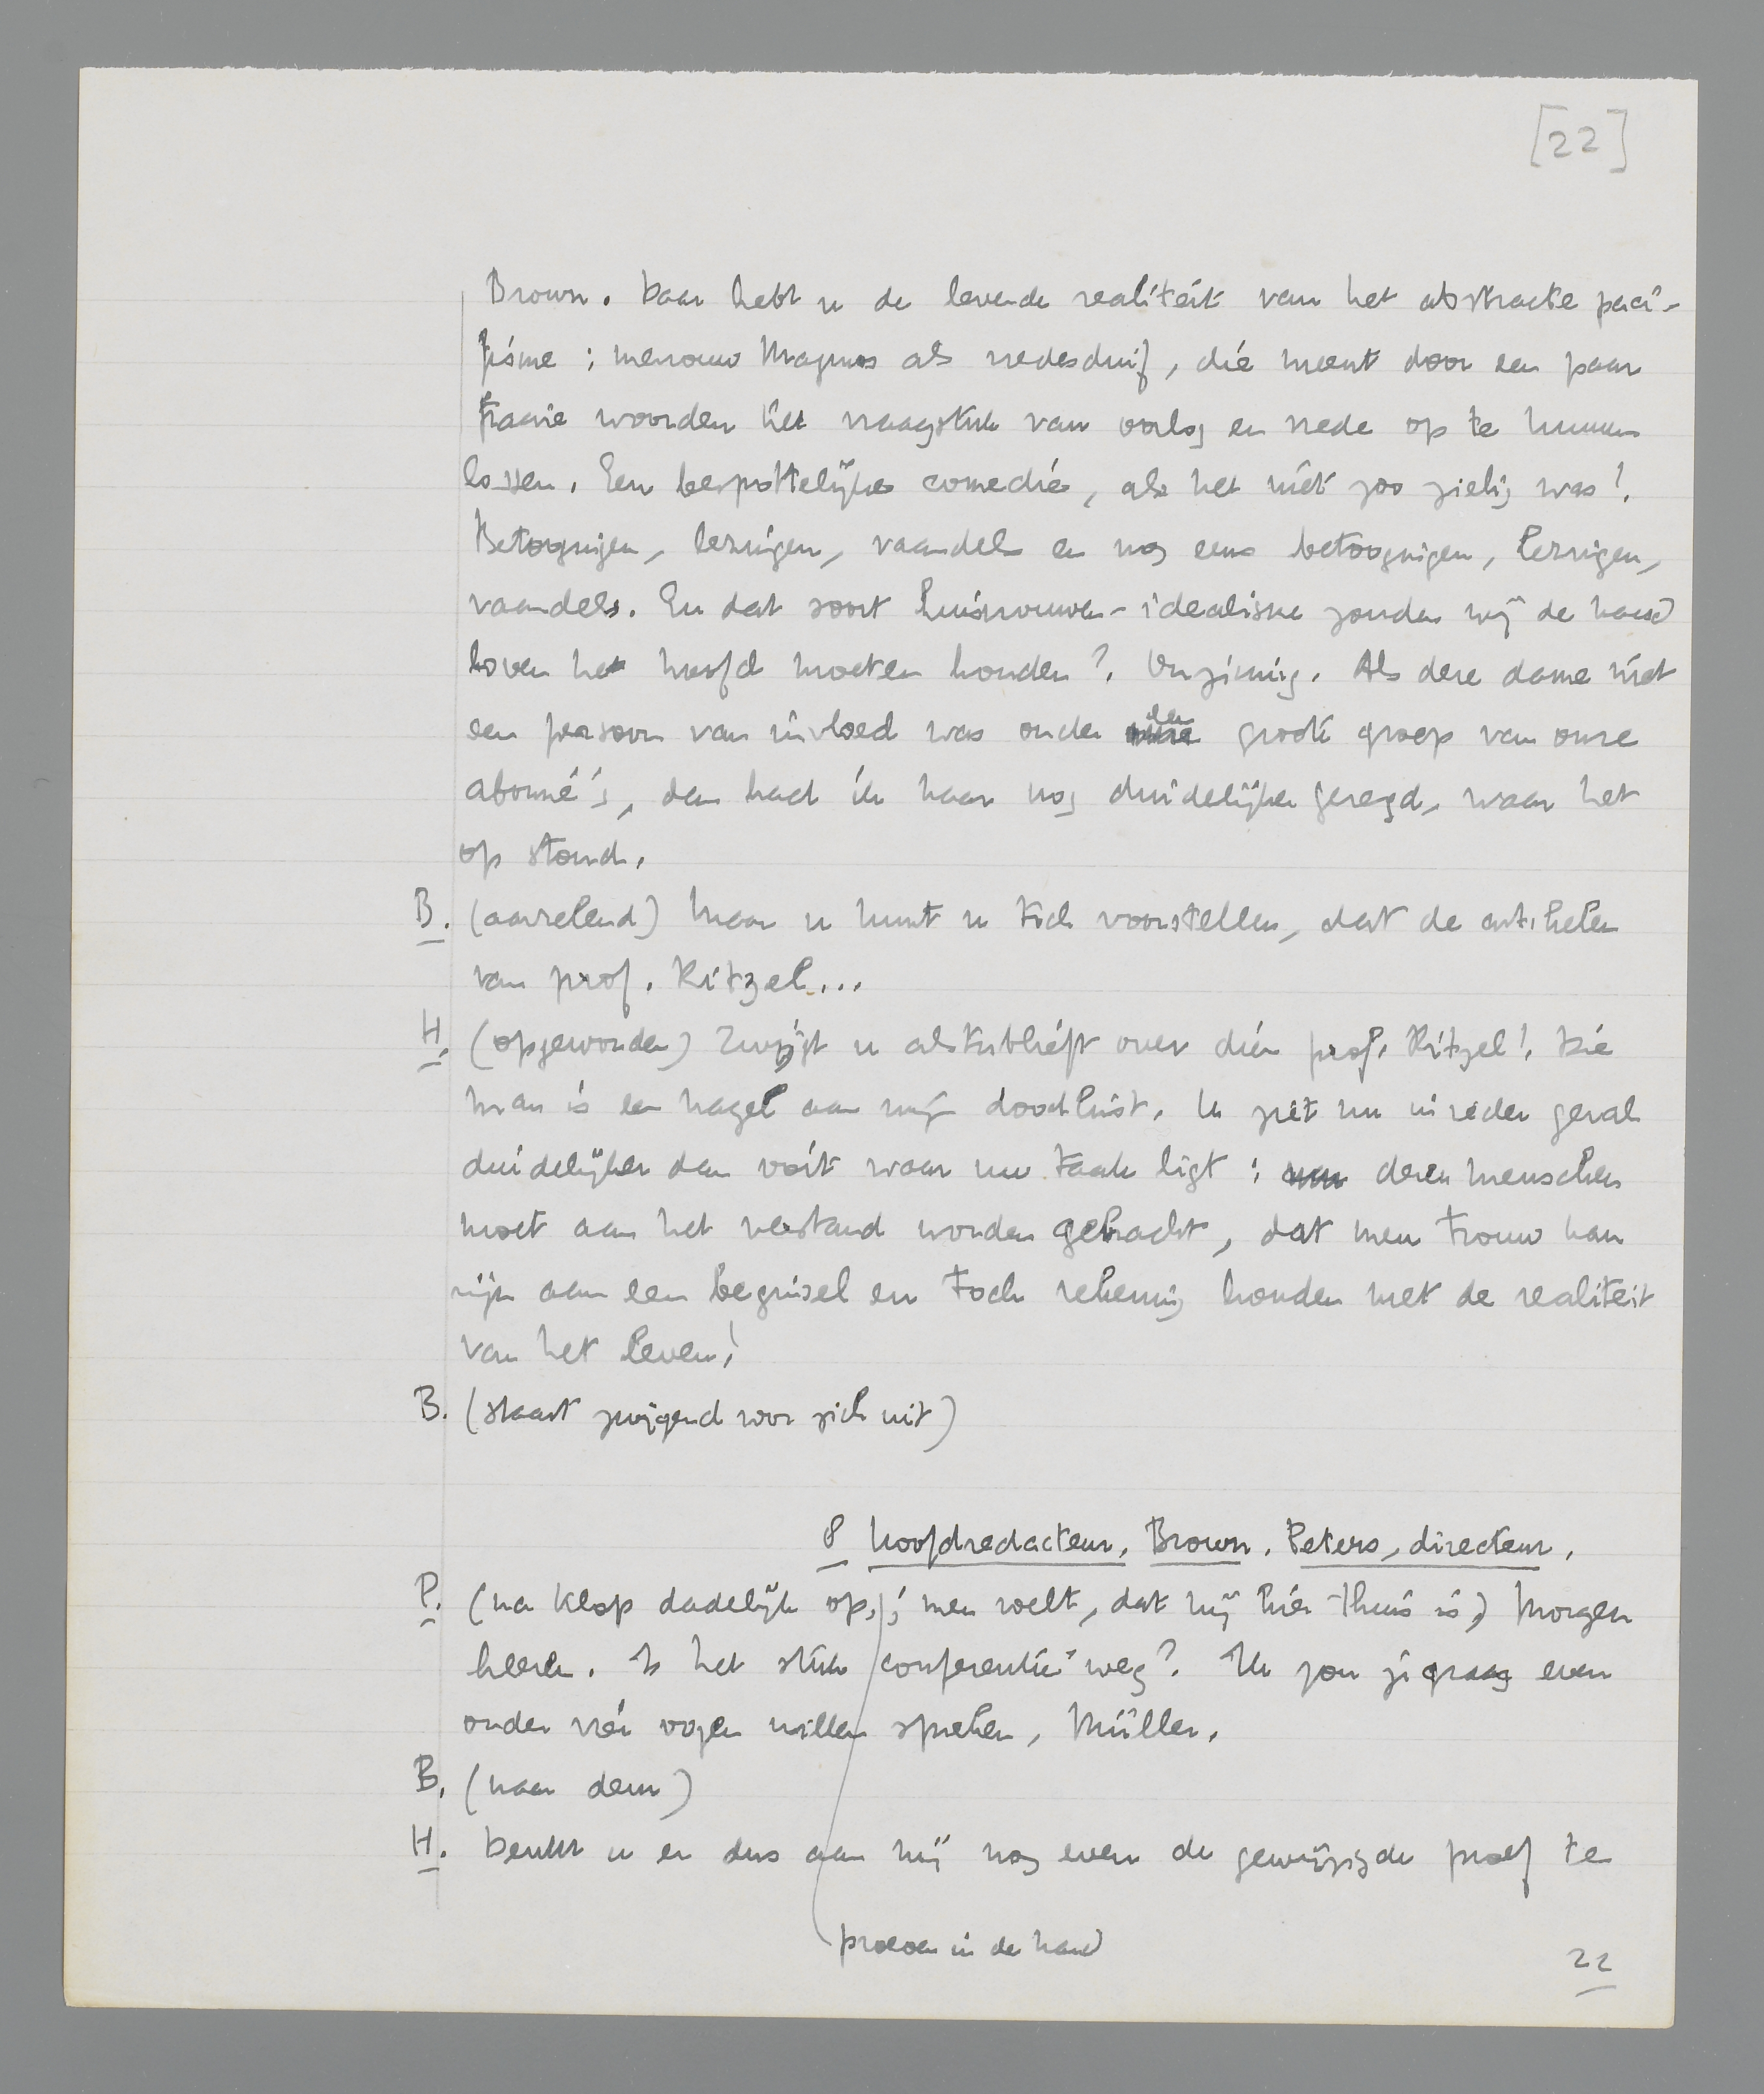 [22]
Brown. Daar hebt u de levende realiteit van het abstracte paci-
fisme: mevrouw Magnus als vredesduif, die meent door een paar
fraaie woorden het vraagstuk van oorlog en vrede op te kunnen
lossen. Een bespottelijke comedie, als het niet zoo zielig was!
Betoogingen, lezingen, vaandels en nog eens betoogingen, lezingen,
vaandels. En dat soort huisvrouwen-idealisme zouden wij de hand
boven het hoofd moeten houden? Onzinnig. Als deze dame niet
een persoon van invloed was onder een groote groep van onze
abonné's, dan had ik haar nog duidelijker gezegd, waar het
op stond.
B. (aarzelend) Maar u kunt u toch voorstellen, dat de artikelen
van prof. Ritzel...
H. (opgewonden) Zwijgt u alstublieft over dien prof. Ritzel! Die
man is een nagel aan mijn doodkist. U ziet nu in ieder geval
duidelijker dan ooit waar uw taak ligt: dezen menschen
moet aan het verstand worden gebracht, dat men trouw kan
zijn aan een beginsel en toch rekening houden met de realiteit
van het leven!
B. (staart zwijgend voor zich uit)
8 Hoofdredacteur, Brown, Peters, directeur.
P. (na klop dadelijk op,; men voelt, dat hij hier thuis is,) Morgen
heeren. Is het stuk conferentie weg? Ik zou je graag even
onder vier oogen willen spreken, Müller.
B. (naar deur)
H. Denkt u er dus aan mij nog even de gewijzigde proef te
proeven in de hand
22